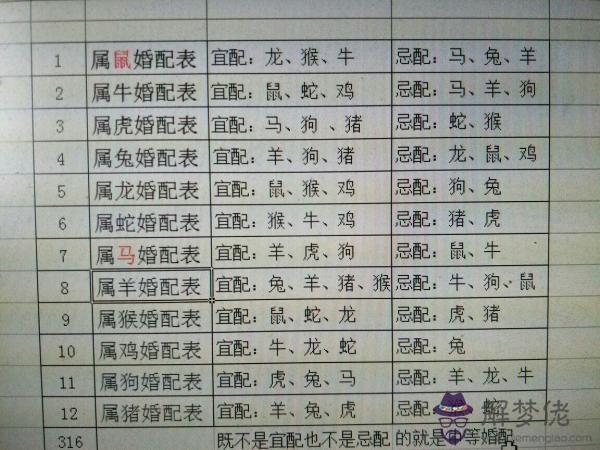 1 属鼠婚配表 宜配：龙、猴、牛 忌配：马、兔、羊
2 属牛婚配表 宜配：鼠、蛇、鸡 忌配：马、羊、狗
3 属虎婚配表 宜配：马、狗 、猪 忌配：蛇、猴
4 属兔婚配表 宜配：羊、狗、猪 忌配：龙、鼠、鸡
5 属龙婚配表 宜配：鼠、猴、鸡 忌配：狗、兔
6 属蛇婚配表 宜配：猴、牛、鸡 忌配：猪、虎
7 属马婚配表 宜配：羊、虎、狗 忌配：鼠、牛
8 属羊婚配表 宜配：兔、羊、猪、猴 忌配：牛、狗、鼠
9 属猴婚配表 宜配：鼠、蛇、龙 忌配：虎、猪
10 属鸡婚配表 宜配：牛、龙、蛇 忌配：兔
11 属狗婚配表 宜配：虎、兔、马 忌配：羊、龙、牛
12 属猪婚配表 宜配：羊、兔、虎 忌配：
316 既不是宜配也不是忌配 的就是中等婚配
解梦佬